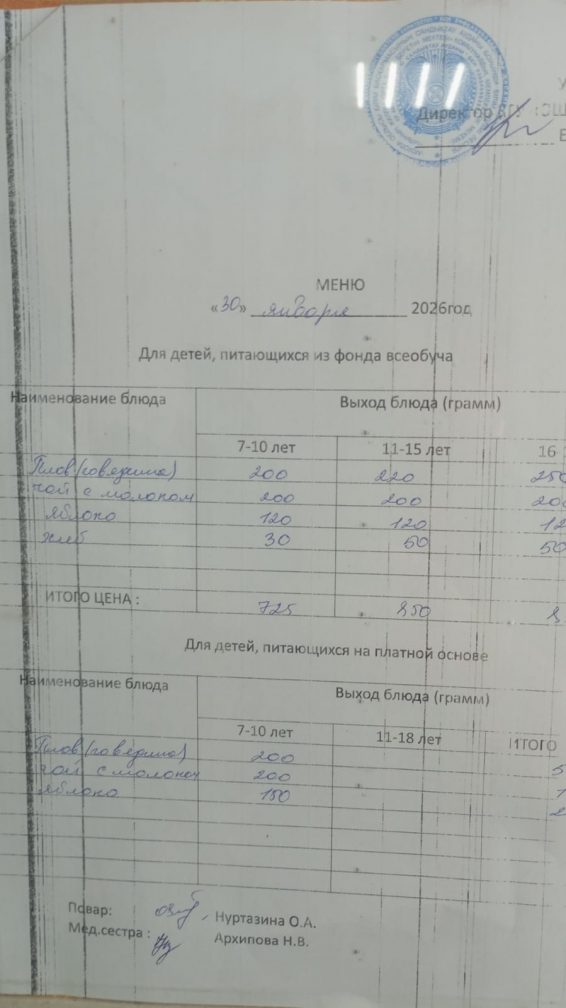 У
Директор КГУ «ОШ
МЕНЮ
«30» января 2026год
Для детей, питающихся из фонда всеобуча
Наименование блюда Выход блюда (грамм)
7-10 лет 11-15 лет 16
Плов (говядина) 200 220 250
чай с молоком 200 200 200
яблоко 120 120 12
хлеб 30 50 50
ИТОГО ЦЕНА : 725 850 8
Для детей, питающихся на платной основе
Наименование блюда Выход блюда (грамм)
7-10 лет 11-18 лет ИТОГО
Плов (говядина) 200 5
чай с молоком 200 1
яблоко 150 2
Повар: Нуртазина О.А.
Мед.сестра : Архипова Н.В.